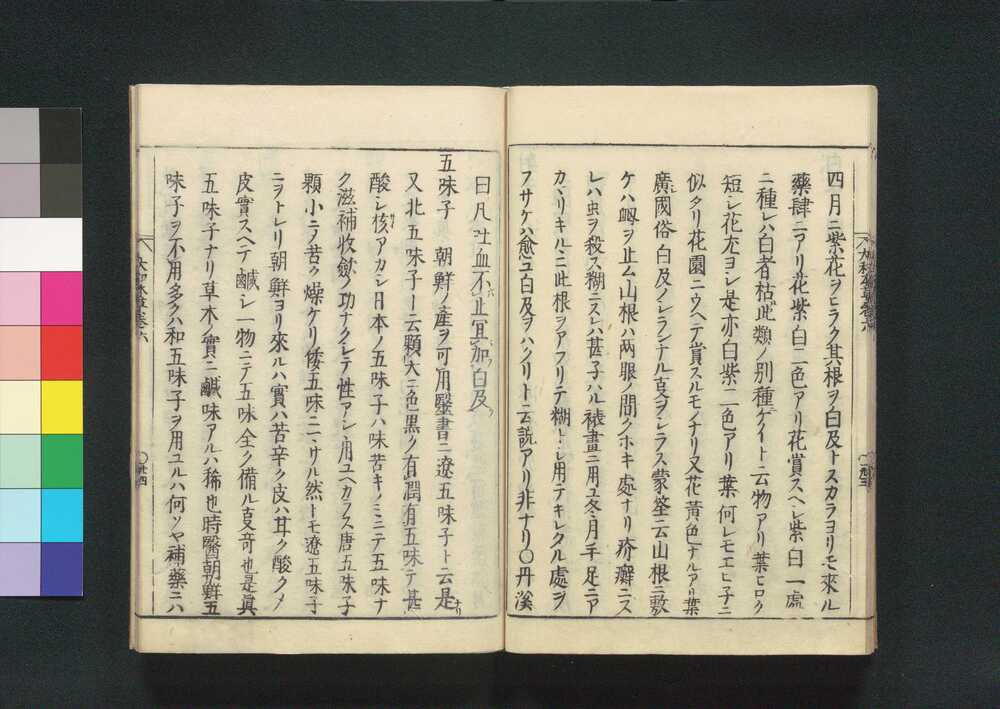 四月ニ紫花ヲヒラク其根ヲ白及トスカラヨリモ來ル
藥肆ニアリ花紫ノ白二色アリ花賞スヘシ紫白一處
ニ種レハ白者枯此類ノ別種ケイトニ云物アリ葉ヒロク
短シ花尤ヨシ是亦白紫二色アリ葉何レモエヒ子ニ
似タリ花園ニウヘテ賞スルモノナリ又花黄色ナルアリ葉
廣國俗白及ノシランナル支ヲシラス蒙筌云山根ニ敷
ケハ衂ヲ止ム山根ハ兩眼ノ間クホキ處ナリ疥癬ニス
レハ虫ヲ殺ス糊ニスレハ甚子ハル裱畫ニ用ユ冬月手足ニア
カヽリキルニ此根ヲアフリテ糊トシ用テキレタル處ヲ
フサケハ愈ユ白及ヲハクリト云説アリ非ナリ〇丹溪
曰凡吐血不止冝加白及
五味子 朝鮮ノ産ヲ可用醫書ニ遼五味子ト云是ナリ
又北五味子ト云顆大ニ色黒ク有潤有五味テ甚
酸シ核アカシ日本ノ五味子ハ味苦キノミニテ五味ナ
ク滋補收斂ノ功ナクシテ性アシヽ用ユヘカラス唐五味子
顆小ニ乄苦ク燥ケリ倭五味ニヽサル然トモ遼五味子
ニヲトレリ朝鮮ヨリ來ルハ實ハ苦辛ク皮ハ甘ク酸ク乄
皮實スヘテ鹹シ一物ニテ五味全ク備ル支奇也是眞
五味子ナリ草木ノ實ニ鹹味アルハ稀也時醫朝鮮五
味子ヲ不用多クハ和五味子ヲ用ユルハ何ソヤ補藥ニハ